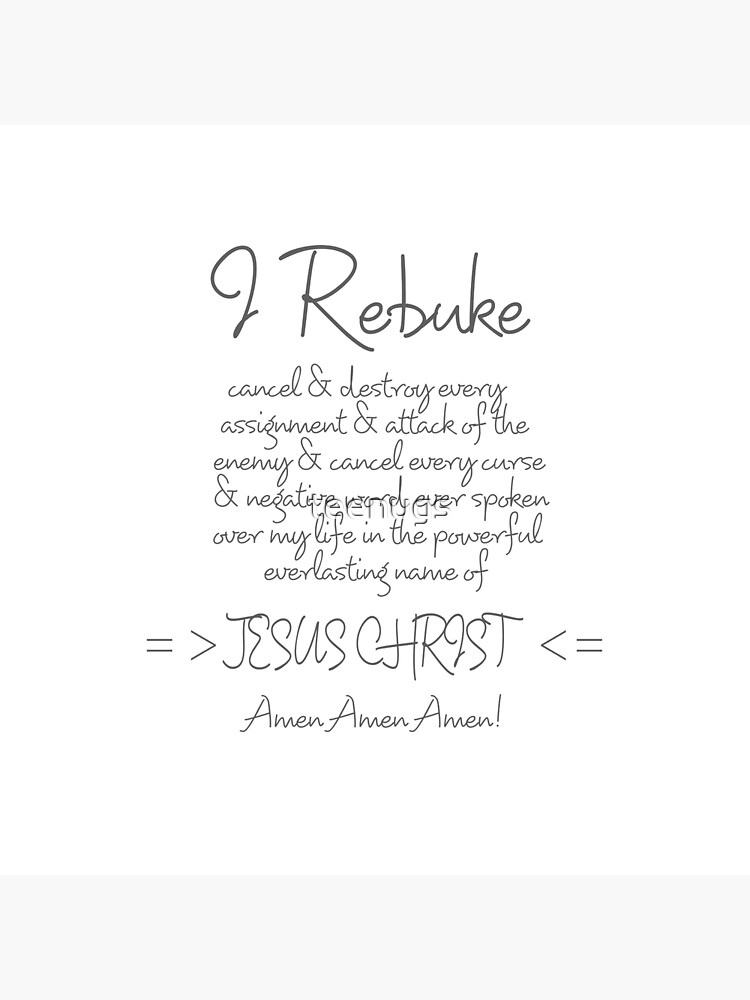 I Rebuke
cancel & destroy every
assignment & attack of the
enemy & cancel every curse
& negative word ever spoken
teemugs
over my life in the powerful
everlasting name of
=>JESUS CHRIST<=
Amen Amen Amen!